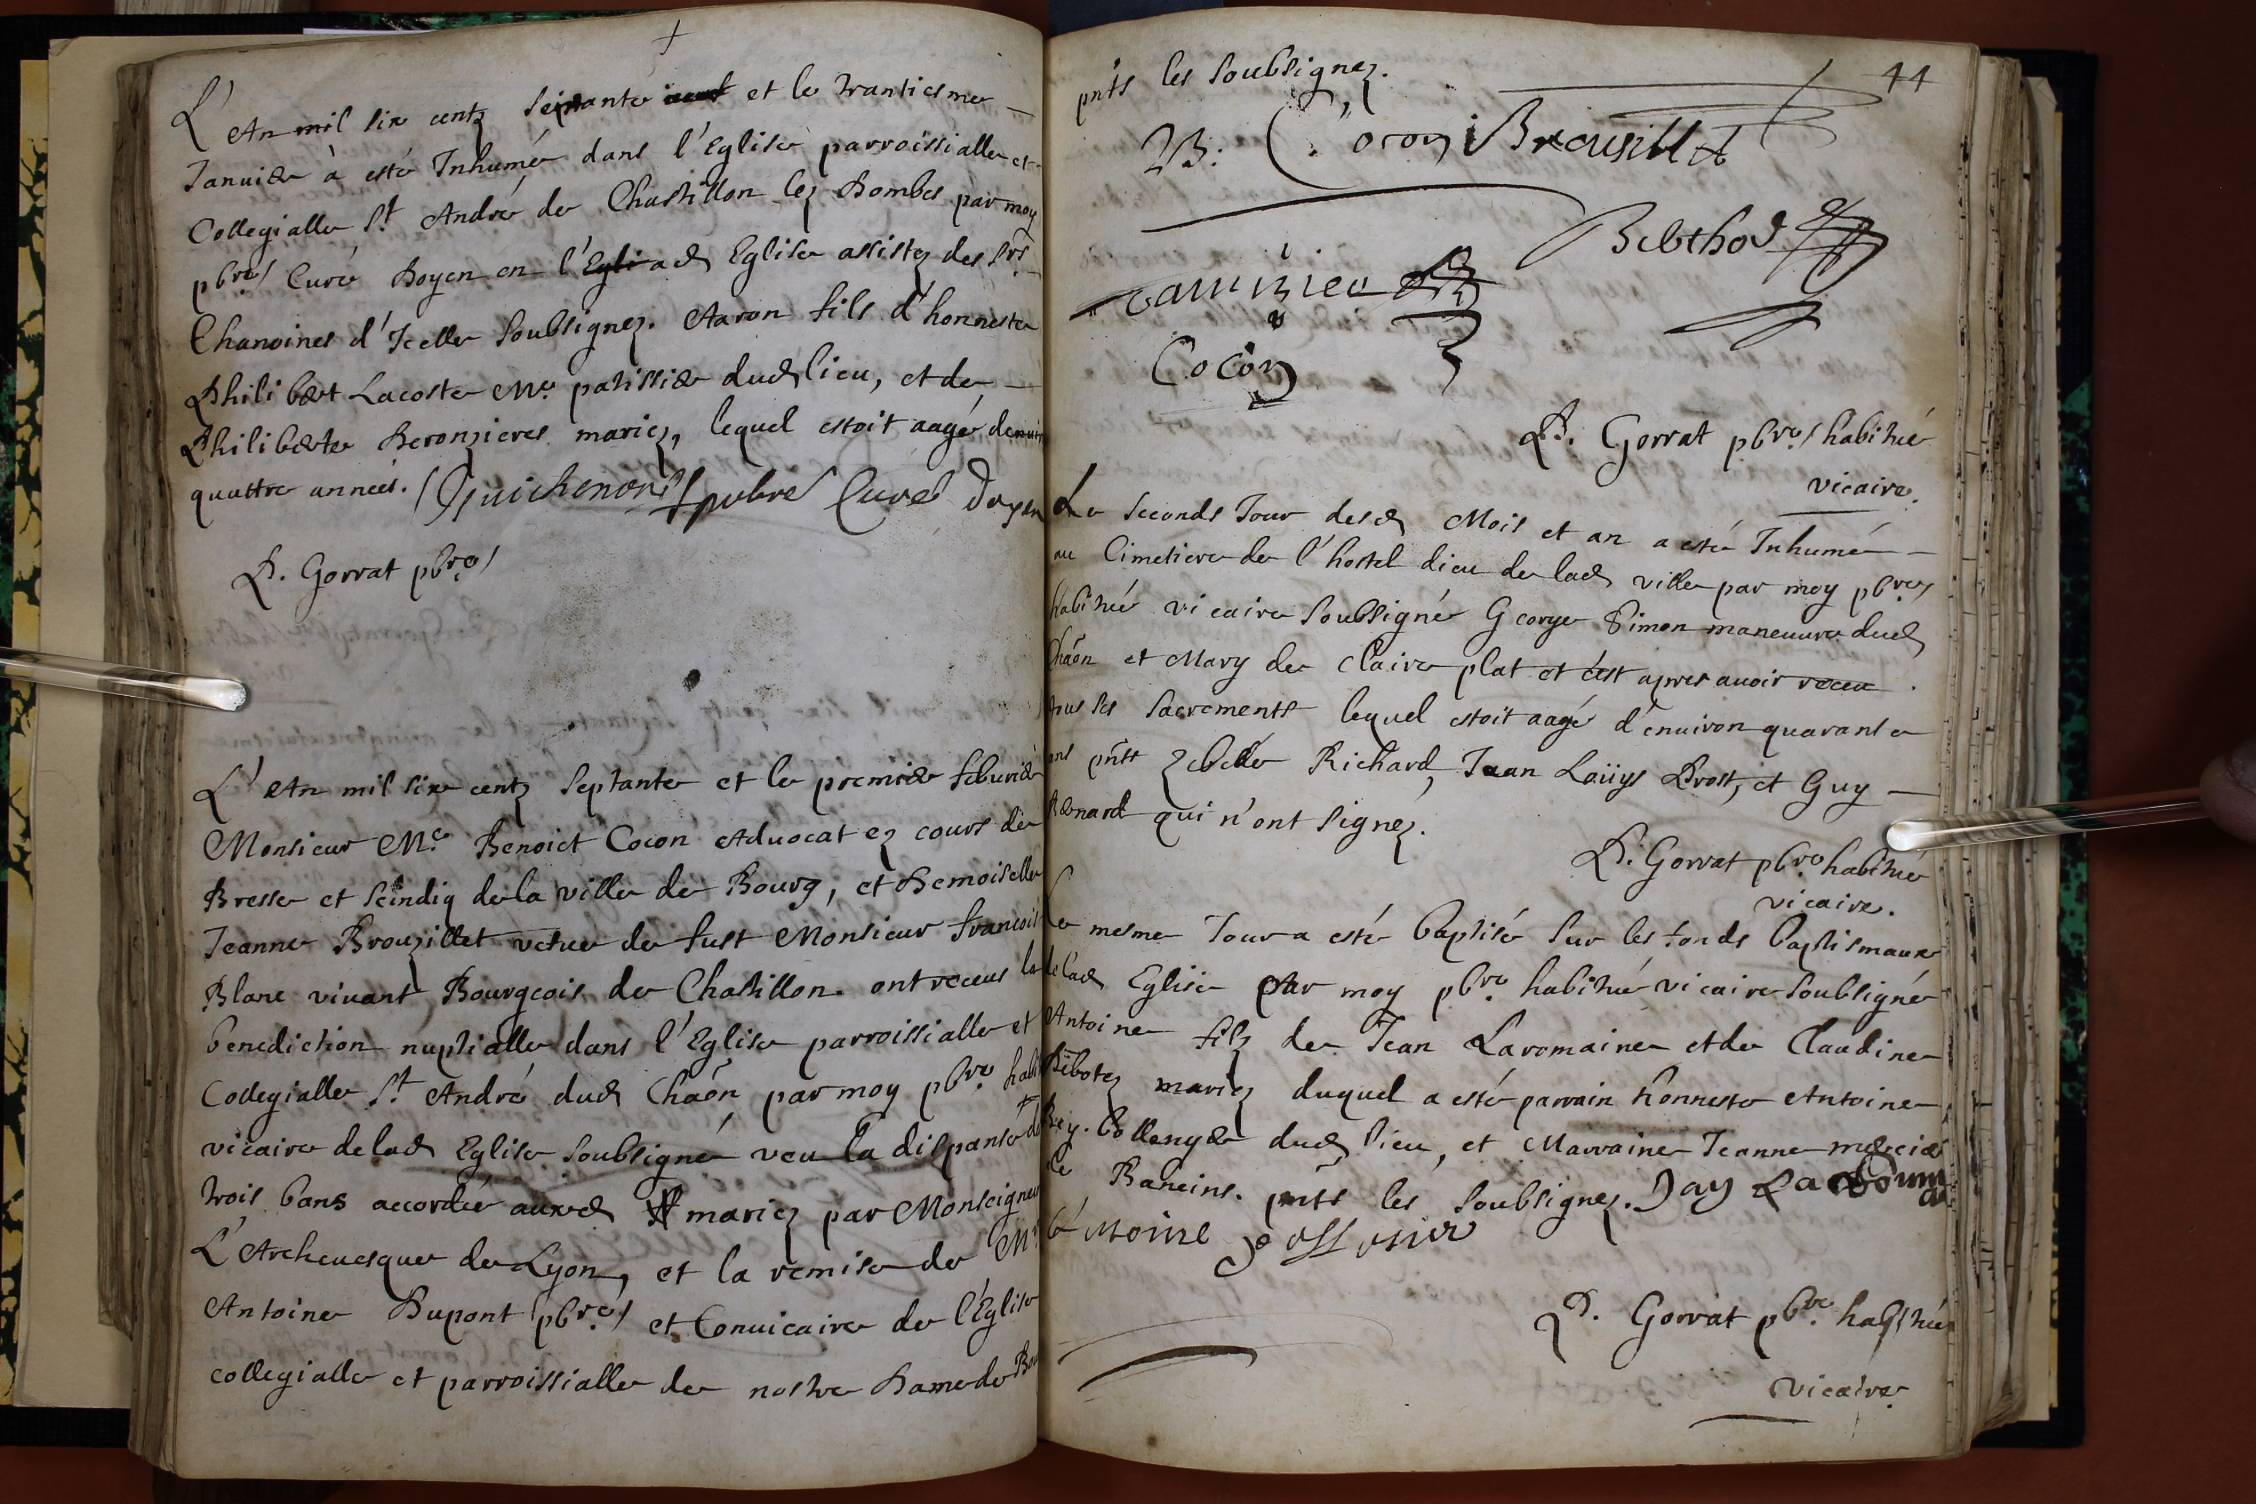 L'An mil six centz septante et le trantiesme
Januier à esté Inhumé dans l'Eglise parroissialle et
Collegialle St André de Chastillon lez Dombes par moy
pbre Curé Doyen en l'Egli lad Eglise assistez des Srs
Chanoines d'Icelle soubsignez. Aaron fils d'honneste
Philibert Lacoste Me patissier dud lieu, et de
Philiberte Deronzieres mariez, lequel estoit aagé denuiron
quattre années. Guichenon pbre Curé Doyen
P. Gorrat pbre
L'An mil six centz septante et le premier feburier
Monsieur Me Benoict Cocon Aduocat ez cours de
Bresse et scindiq de la ville de Bourg, et Demoiselle
Jeanne Brouzillet vefue de fust Monsieur francois
Blanc viuant Bourgeois de Chastillon ont receus la
benediction nuptialle dans l'Eglise parroissialle et
Collegialle St André dud Chaôn par moy pbre habitué
vicaire de lad Eglise soubsigné veu la dispanse de
trois bans accordée auxd mariez par Monseigneur
L'Archeuesque de Lyon, et la remise de Mre
Antoine Dupont pbre et Conuicaire de l'Eglise
collegialle et parroissialle de nostre Dame de Bourg
44
pnts les soubsignez.
B: Cocon Breusillet
Bebthod
Camisieu
Cocon
P. Gorrat pbre habitué
vicaire.
Le seconds Jour desd Mois et an a esté Inhumé
au Cimetiere de l'hostel dieu de lad ville par moy pbre
habitué vicaire soubsigné George Simon maneuure dud
Chaôn et Mary de Claire plat et c'est apres auoir receu
tous ses sacrements lequel estoit aagé d'enuiron quarante
ans pntz Richard, Jean Loüys Prost, et Guy
Renard qui n'ont signez.
P. Gorrat pbre habitué
vicaire.
Le mesme Jour a esté baptisé sur les fonds baptismaux
de lad Eglise par moy pbre habitué vicaire soubsigné
Antoine filz de Jean Laromaine et de Claudine
Ribotez mariez duquel a esté parrain honneste Antoine
Rey. bollengier dud lieu, et Marraine Jeanne mercier
de Baneins. pnts les soubsignez. Jay
P. Gorrat pbre habitué
vicaire